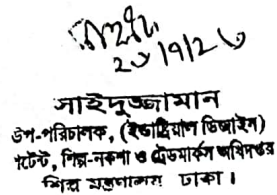 ২০/৭/২৩
সাইদুজ্জামান
উপ-পরিচালক, (ইন্ডাস্ট্রিয়াল ডিজাইন)
পেটেন্ট, শিল্প-নকশা ও ট্রেডমার্কস অধিদপ্তর
শিল্প মন্ত্রণালয় ঢাকা।